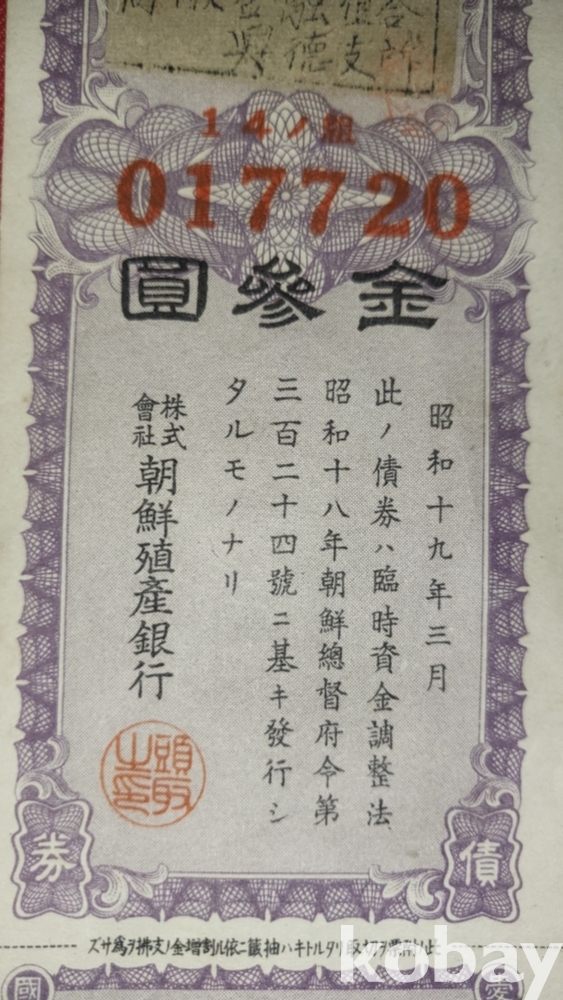 14ノ組
017720
金參圓
昭和十九年三月
此ノ債券ハ臨時資金調整法
昭和十八年朝鮮總督府令第
三百二十四號ニ基キ發行シ
タルモノナリ
株式會社朝鮮殖產銀行
頭取之印
債券
此ノ附票ヲ切取リタルトキハ抽籤ニ依ル割增金ノ支拂ヲ爲サズ
愛國
kobay